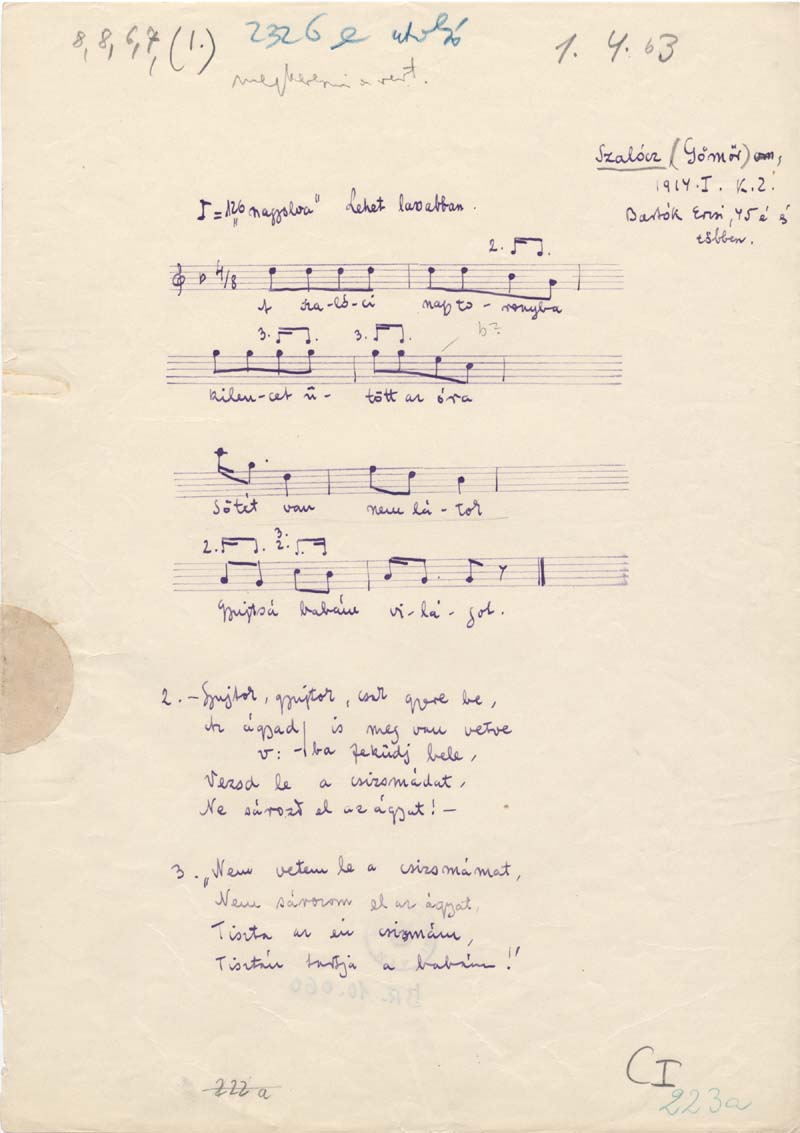 8, 8, 6, 7, (1.) 2326 e utolsó 1. 4. 63
megkeresni a vert.
Szalócz (Gömör)
1914. I. K. Z.
Bartók Erzsi, 45 é és
többen.
♪=126 "nagyolva" Lehet lassabban.
2.
4/8
A sza-ló-ci nap to-ronyba
3. 3. b?
Kilen-cet ü-tött az óra
Sötét van nem lá-tok
2. 3.
2.
Gyujtsá babám vi-lá-got.
2. – Gyujtok, gyujtok, csak gyere be,
Az ágyad is meg van vetve
v: -ba feküdj bele,
Vezsd le a csizsmádat,
Ne sározd el az ágyat! –
3. „Nem vetem le a csizsmámat,
Nem sározom el az ágyat,
Tiszta az én csizmám,
Tisztán tartja a babám!"
BR. 10.060
222a
CI
223a